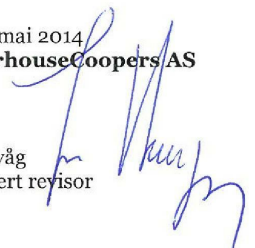 mai 2014
rhouseCoopers AS
våg
ert revisor